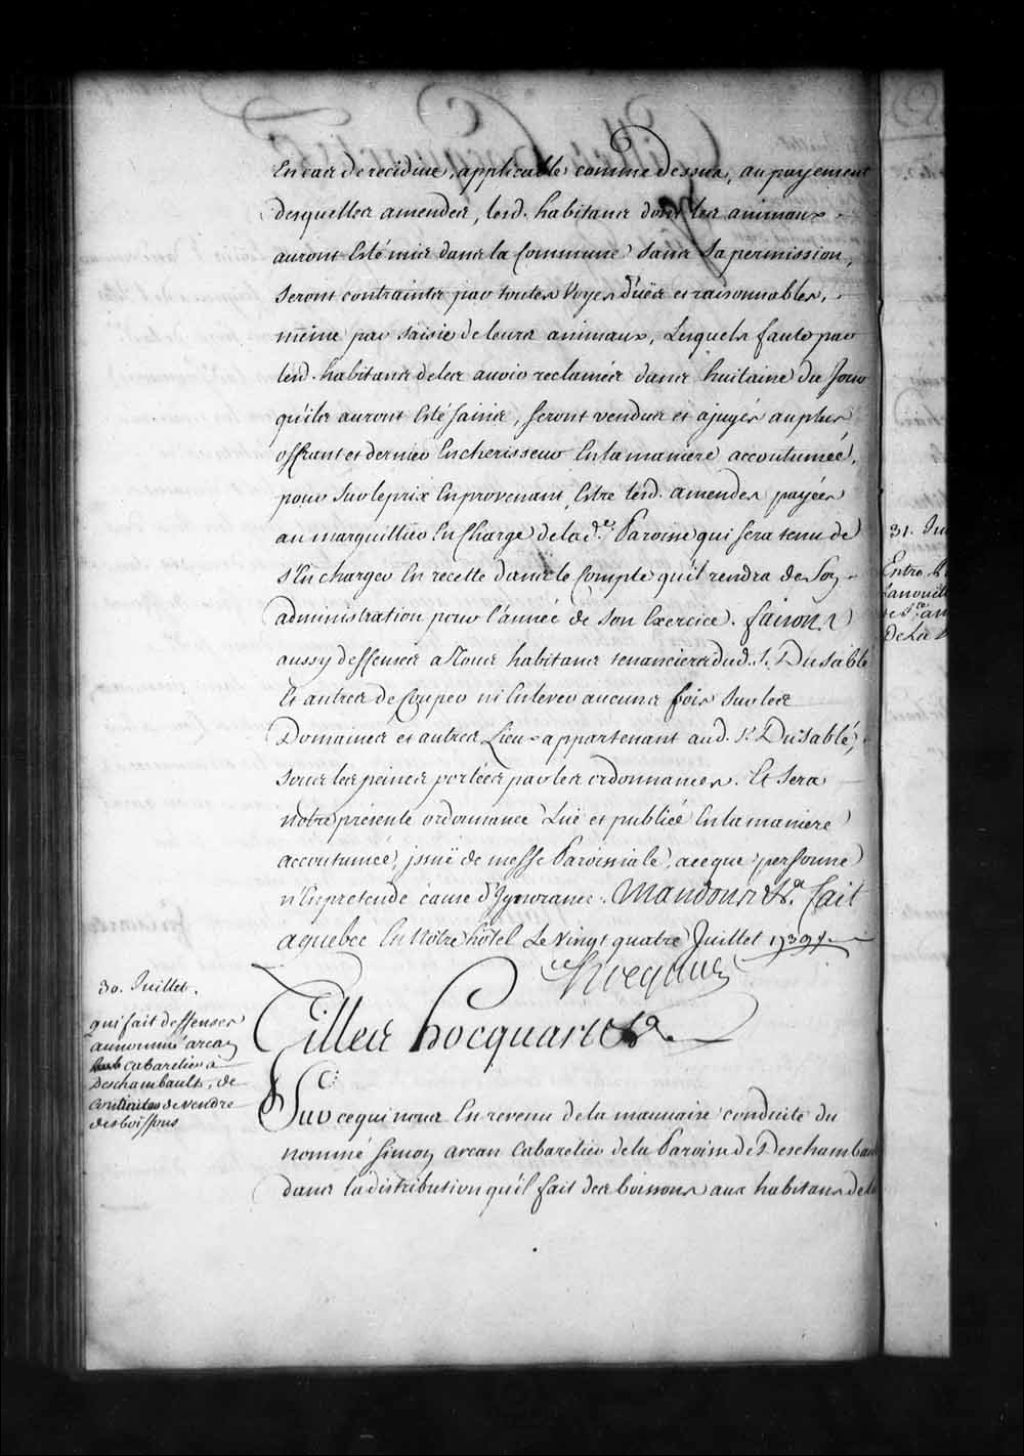 En cas de recidive, applicable comme Dessus, au payement
desquelles amendes, lesd. habitans dont les animaux
auront Esté mis dans la Commune sans sa permission,
seront contraints par toutes Voyes düës et raisonnables,
même par saisie de leurs animaux, Lesquels faute par
lesd. habitans de les avoir reclamés dans huitaine du Jour
qu'ils auront Esté saisis, seront vendus et ajugés au plus
offrant et dernier Encherisseur En la maniere accoutumée,
pour sur le prix En provenant, Estre lesd. amendes payées
au marguillier En Charge de la de. Paroisse qui sera tenu de
s'En charger En recette dans le Compte qu'il rendra de Son
administration pour l'année de son Exercice. faisons
aussy deffenses a Tous habitans tenanciers dud. S. Dusablé
Et autres de Couper ni Enlever aucuns bois sur les
Domaines et autres Lieux appartenant aud. Sr. Dusablé,
sous les peines portées par les ordonnances. Et sera
notre présente ordonnance Lüe et publiée En la maniere
accoutumée, issuë de messe Paroissiale, ace que personne
n'En pretende cause d'Ignorance. Mandons &a. fait
a quebec En Nôtre hôtel Le Vingt quatre Juillet 1739
Hocquart
30. Juillet.
qui fait deffenses
au nommé arcan
cabaretier a
Deschambault, de
continuer de vendre
des boissons
Gilles hocquart &a.
Sur ce qui nous En revenu de la mauvaise conduite du
nommé Simon arcan Cabaretier de la Paroisse de Deschambau
dans la distribution qu'il fait des boissons aux habitans de la
31. Jui
Entre
Lanouill
de Ste. an
De La